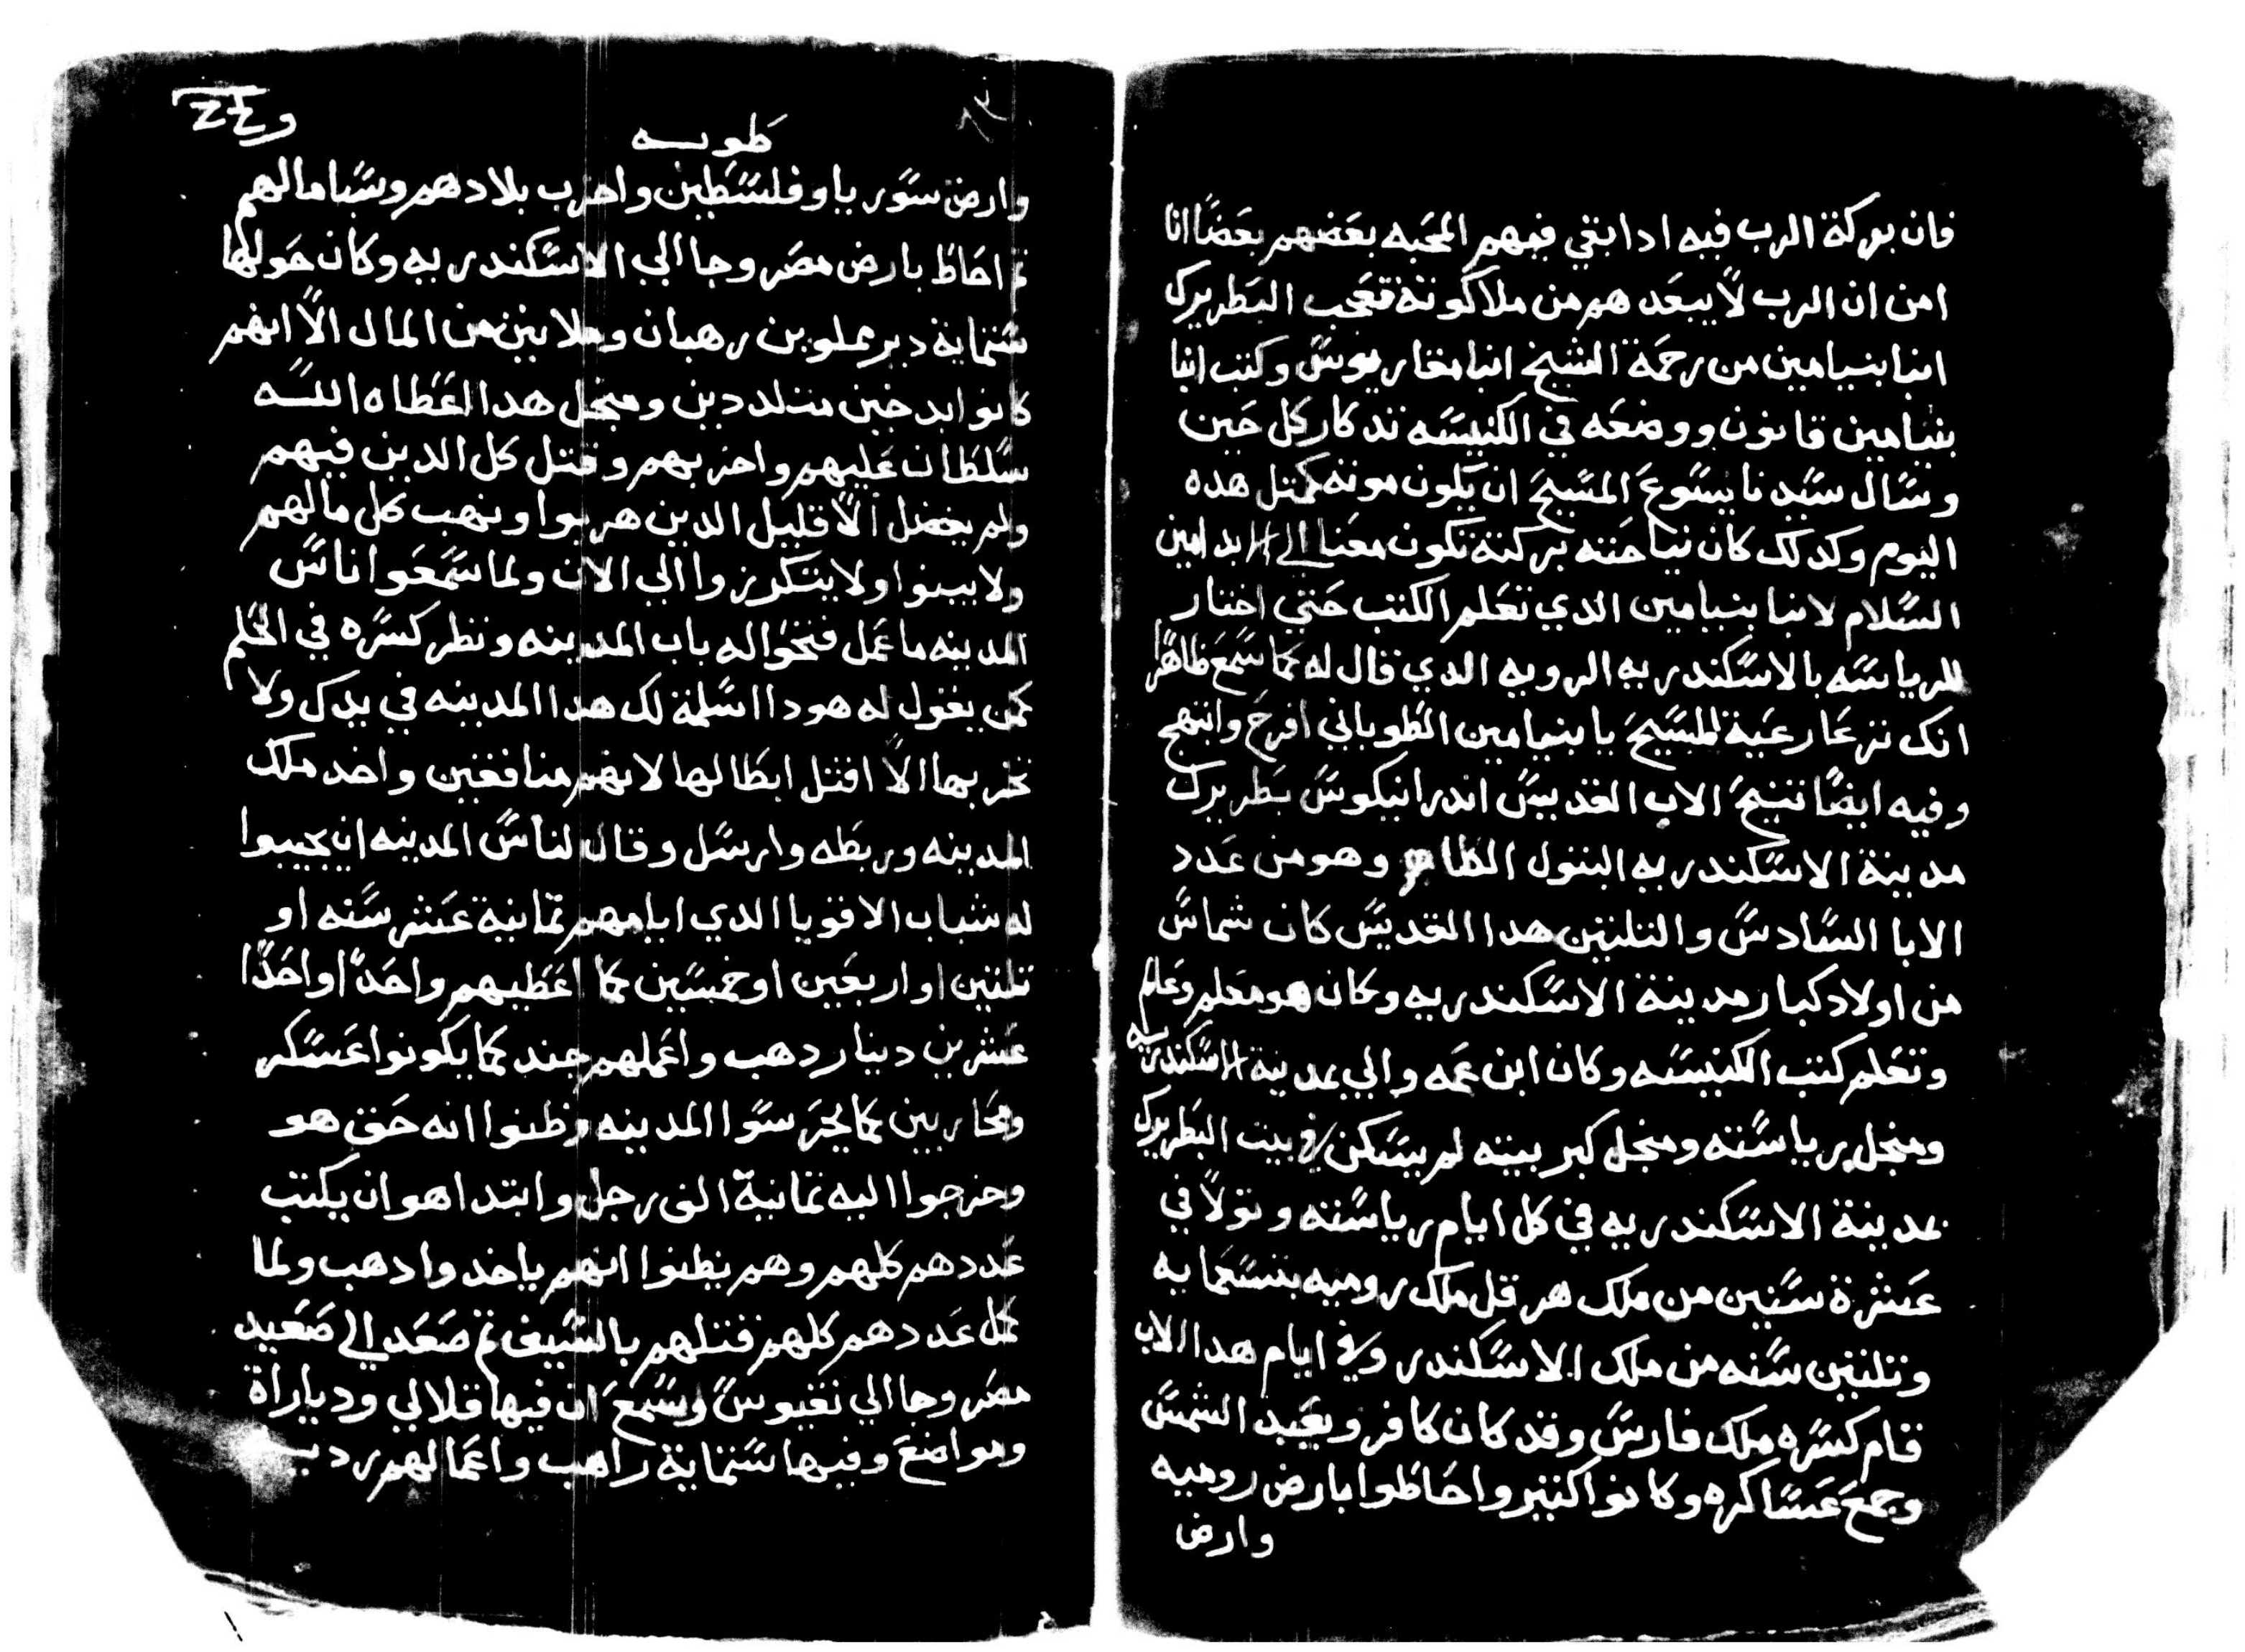 فان بركة الرب فيه ادا بقي فيهم المحبه بعضهم بعضًا انا
امن ان الرب لا يبعدهم من ملاكوته فتعجب البطريرك
انبا بنيامين من رحمة الشيخ انبا مقاريوس وكتب انبا
بنيامين قانون ووضعه في الكنيسه تدكار كل حين
وسال سيدنا يسوع المسيح ان يكون موته كمتل هده
اليوم وكدلك كان نياحته بركته تكون معنا الي الابد امين
السلام لانبا بنيامين الدي تعلم الكتب حتي اختار
للرياسه بالاسكندريه الرويه الدي قال له كما سمع ظاهرًا
انك ترعا رعية المسيح يا بنيامين الطوباني افرح وابتهج
وفيه ايضًا تنيح الاب القديس اندرانيكوس بطريرك
مدينة الاسكندريه البتول الطاهر وهو من عدد
الابا السادس والتلتين هدا القديس كان شماس
من اولاد كبار مدينة الاسكندريه وكان هو معلم وعالم
وتعلم كتب الكنيسه وكان ابن عمه والي بمدينة الاسكندريه
ومنجل رياسته ومنجل كبر بيته لم يسكن في بيت البطريرك
بمدينة الاسكندريه في كل ايام رياسته وتولا في
عشرة سنين من ملك هرقل ملك روميه بتسعمايه
وتلتين سنه من ملك الاسكندر وفي ايام هدا الاب
قام كسره ملك فارس وقد كان كافر ويعبد الشمس
وجمع عساكره وكانوا كتير واحاطوا بارض روميه
وارض
طوبه
وارض سوريا وفلسطين واخرب بلادهم وسبا مالهم
تم احاط بارض مصر وجا الي الاسكندريه وكان حولها
ستماية دير مملوين رهبان وملايين من المال الا انهم
كانوا ابد حين متلددين ومنجل هدا اعطاه الله
سلطان عليهم واخربهم وقتل كل الدين فيهم
ولم يفضل الا قليل الدين هربوا ونهب كل مالهم
ولا يبنوا ولا يتكرزوا الي الان ولما سمعوا ناس
المدينه ما عمل فتحوا له باب المدينه ونظر كسره في الحلم
كمن يقول له هودا اسلمة لك هدا المدينه في يدك ولا
تخربها الا اقتل ابطالها لانهم منافقين واخد ملك
المدينه وربطه وارسل وقال لناس المدينه ان يجيبوا
له شباب الاقويا الدي ايامهم تمانية عشر سنه او
تلتين او اربعين او خمسين كما اعطيهم واحدًا واحدًا
عشرين دينار دهب واعملهم جند كما يكونوا عسكر
ومحاربين كما يحرسوا المدينه وظنوا انه حق هو
وخرجوا اليه تمانية الف رجل وابتدا هو ان يكتب
عددهم كلهم وهم يظنوا انهم ياخدوا دهب ولما
كمل عددهم كلهم قتلهم بالسيف تم صعد الي صعيد
مصر وجا الي نقيوس وسمع ان فيها قلالي ودياراة
ومواضع وفيها ستماية راهب واعمالهم رديـه